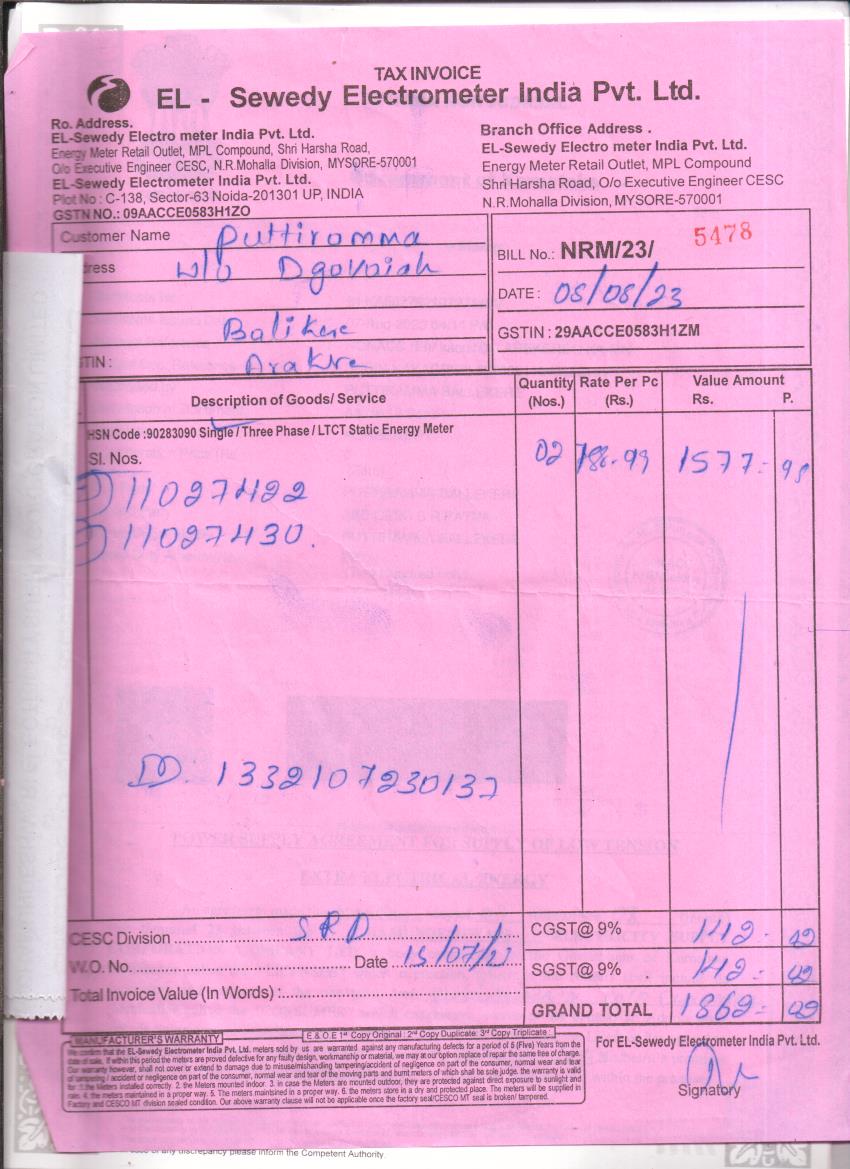 TAX INVOICE
EL - Sewedy Electrometer India Pvt. Ltd.
Ro. Address.
EL-Sewedy Electro meter India Pvt. Ltd.
Energy Meter Retail Outlet, MPL Compound, Shri Harsha Road,
O/o Executive Engineer CESC, N.R.Mohalla Division, MYSORE-570001
EL-Sewedy Electrometer India Pvt. Ltd.
Plot No : C-138, Sector-63 Noida-201301 UP, INDIA
GSTN NO.: 09AACCE0583H1ZO
Branch Office Address .
EL-Sewedy Electro meter India Pvt. Ltd.
Energy Meter Retail Outlet, MPL Compound
Shri Harsha Road, O/o Executive Engineer CESC
N.R.Mohalla Division, MYSORE-570001
Customer Name Puttiromma
ress w/o
Balikere
TIN :
BILL No.: NRM/23/ 5478
DATE : 08/08/23
GSTIN : 29AACCE0583H1ZM
Description of Goods/ Service Quantity (Nos.) Rate Per Pc (Rs.) Value Amount Rs. P.
HSN Code :90283090 Single / Three Phase / LTCT Static Energy Meter
Sl. Nos. 02 1577=
1) 11027422
2) 11027430.
DD. 1332107230137
CESC Division SRD
W.O. No. Date 15/07/23
Total Invoice Value (In Words) :
CGST@ 9% 142=
SGST@ 9% 142=
GRAND TOTAL 1862=
MANUFACTURER'S WARRANTY
E & O E 1st Copy Original : 2nd Copy Duplicate: 3rd Copy Triplicate :
We confirm that the EL-Sewedy Electrometer India Pvt. Ltd. meters sold by us are warranted against any manufacturing defects for a period of 5 (Five) Years from the
date of sale, If within this period the meters are proved defective for any faulty design, workmanship or material, we may at our option replace of repair the same free of charge.
Our warranty however, shall not cover or extend to damage due to misuse/mishandling tampering/accident of negligence on part of the consumer, normal wear and tear
of tampering / accident or negligence on part of the consumer, normal wear and tear of the moving parts and burnt meters of which shall be sole judge. the warranty is valid
for :1. the Meters installed correctly. 2. the Meters mounted indoor. 3. in case the Meters are mounted outdoor, they are protected against direct exposure to sunlight and
rain. 4. the meters maintained in a proper way. 5. The meters maintsined in a proper way. 6. the meters store in a dry and protected place. The meters will be supplied in
Factory and CESCO MT division sealed condition. Our above warranty clause will not be applicable once the factory seal/CESCO MT seal is broken/ tampered.
For EL-Sewedy Electrometer India Pvt. Ltd.
Signatory
of any discrepancy please inform the Competent Authority.